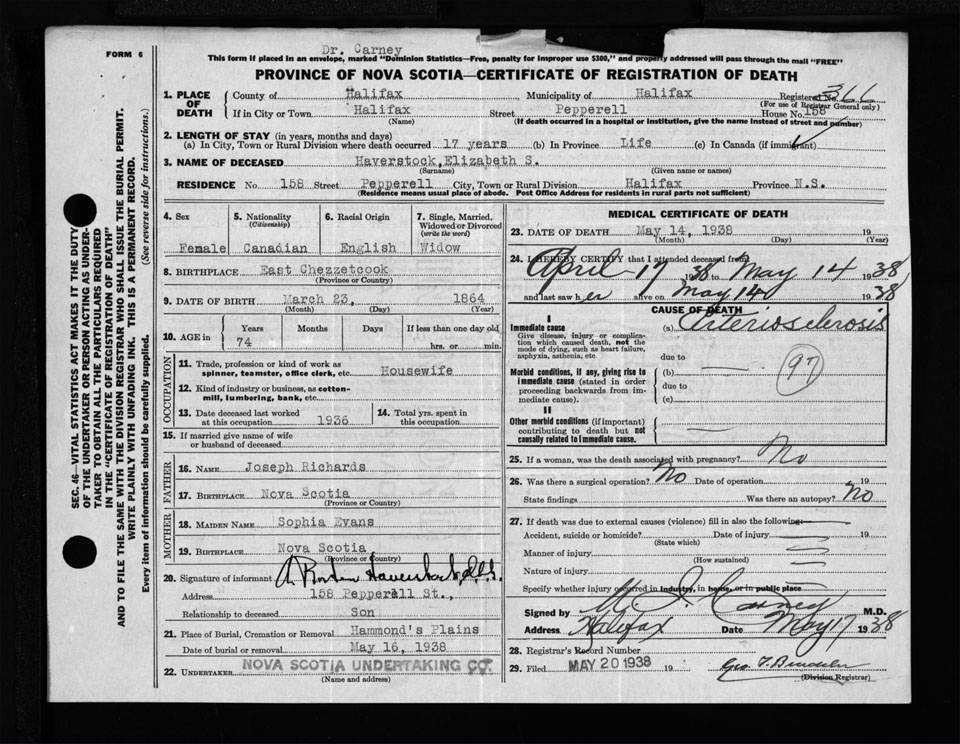 FORM 6
Dr. Carney
This form if placed in an envelope, marked "Dominion Statistics—Free, penalty for improper use $300," and property addressed will pass through the mail "FREE"
PROVINCE OF NOVA SCOTIA—CERTIFICATE OF REGISTRATION OF DEATH
1. PLACE OF DEATH
County of Halifax Municipality of Halifax Registered No. 366
(For use of Registrar General only)
If in City or Town Halifax Street Pepperell House No. 158
(Name) (If death occurred in a hospital or institution, give the name instead of street and number)
2. LENGTH OF STAY (in years, months and days)
(a) In City, Town or Rural Division where death occurred 17 years (b) In Province Life (c) In Canada (if immigrant)
3. NAME OF DECEASED Haverstock, Elizabeth S.
(Surname) (Given name or names)
RESIDENCE No. 158 Street Pepperell City, Town or Rural Division Halifax Province N.S.
(Residence means usual place of abode. Post Office Address for residents in rural parts not sufficient)
4. Sex
Female
5. Nationality
(Citizenship)
Canadian
6. Racial Origin
English
7. Single, Married, Widowed or Divorced
(write the word)
Widow
8. BIRTHPLACE East Chezzetcook
(Province or Country)
9. DATE OF BIRTH March 23, 1864
(Month) (Day) (Year)
10. AGE in
Years Months Days If less than one day old
74 hrs. or min.
OCCUPATION
11. Trade, profession or kind of work as
spinner, teamster, office clerk, etc. Housewife
12. Kind of industry or business, as cotton-
mill, lumbering, bank, etc.
13. Date deceased last worked
at this occupation 1936
14. Total yrs. spent in
this occupation
15. If married give name of wife
or husband of deceased
FATHER
16. Name Joseph Richards
17. Birthplace Nova Scotia
(Province or Country)
MOTHER
18. Maiden Name Sophia Evans
19. Birthplace Nova Scotia
(Province or Country)
20. Signature of informant Haverstock
Address 158 Pepperell St.,
Relationship to deceased Son
21. Place of Burial, Cremation or Removal Hammond's Plains
Date of burial or removal May 16, 1938
22. Undertaker NOVA SCOTIA UNDERTAKING CO.
(Name and address)
MEDICAL CERTIFICATE OF DEATH
23. DATE OF DEATH May 14, 1938 19
(Month) (Day) (Year)
24. I HEREBY CERTIFY that I attended deceased from
April 17 1938 to May 14 1938
and last saw her alive on May 14 1938
CAUSE OF DEATH
I
Immediate cause
Give disease, injury or complica-
tion which caused death, not the
mode of dying, such as heart failure,
asphyxia, asthenia, etc.
(a) Arteriosclerosis
due to
Morbid conditions, if any, giving rise to
immediate cause (stated in order
proceeding backwards from im-
mediate cause).
(b) —
97
due to
(c)
II
Other morbid conditions (if important)
contributing to death but not
causally related to immediate cause.
25. If a woman, was the death associated with pregnancy? No
26. Was there a surgical operation? No Date of operation 19
State findings Was there an autopsy? No
27. If death was due to external causes (violence) fill in also the following:—
Accident, suicide or homicide? Date of injury 19
(State which)
Manner of injury
(How sustained)
Nature of injury
Specify whether injury occurred in industry, in home, or in public place
Signed by Carney M.D.
Address Halifax Date May 17 1938
28. Registrar's Record Number
29. Filed MAY 20 1938 19
(Division Registrar)
SEC. 46—VITAL STATISTICS ACT MAKES IT THE DUTY
OF THE UNDERTAKER OR PERSON ACTING AS UNDER-
TAKER TO OBTAIN ALL THE PARTICULARS REQUIRED
IN THE "CERTIFICATE OF REGISTRATION OF DEATH"
AND TO FILE THE SAME WITH THE DIVISION REGISTRAR WHO SHALL ISSUE THE BURIAL PERMIT.
WRITE PLAINLY WITH UNFADING INK. THIS IS A PERMANENT RECORD.
Every item of information should be carefully supplied. (See reverse side for instructions.)